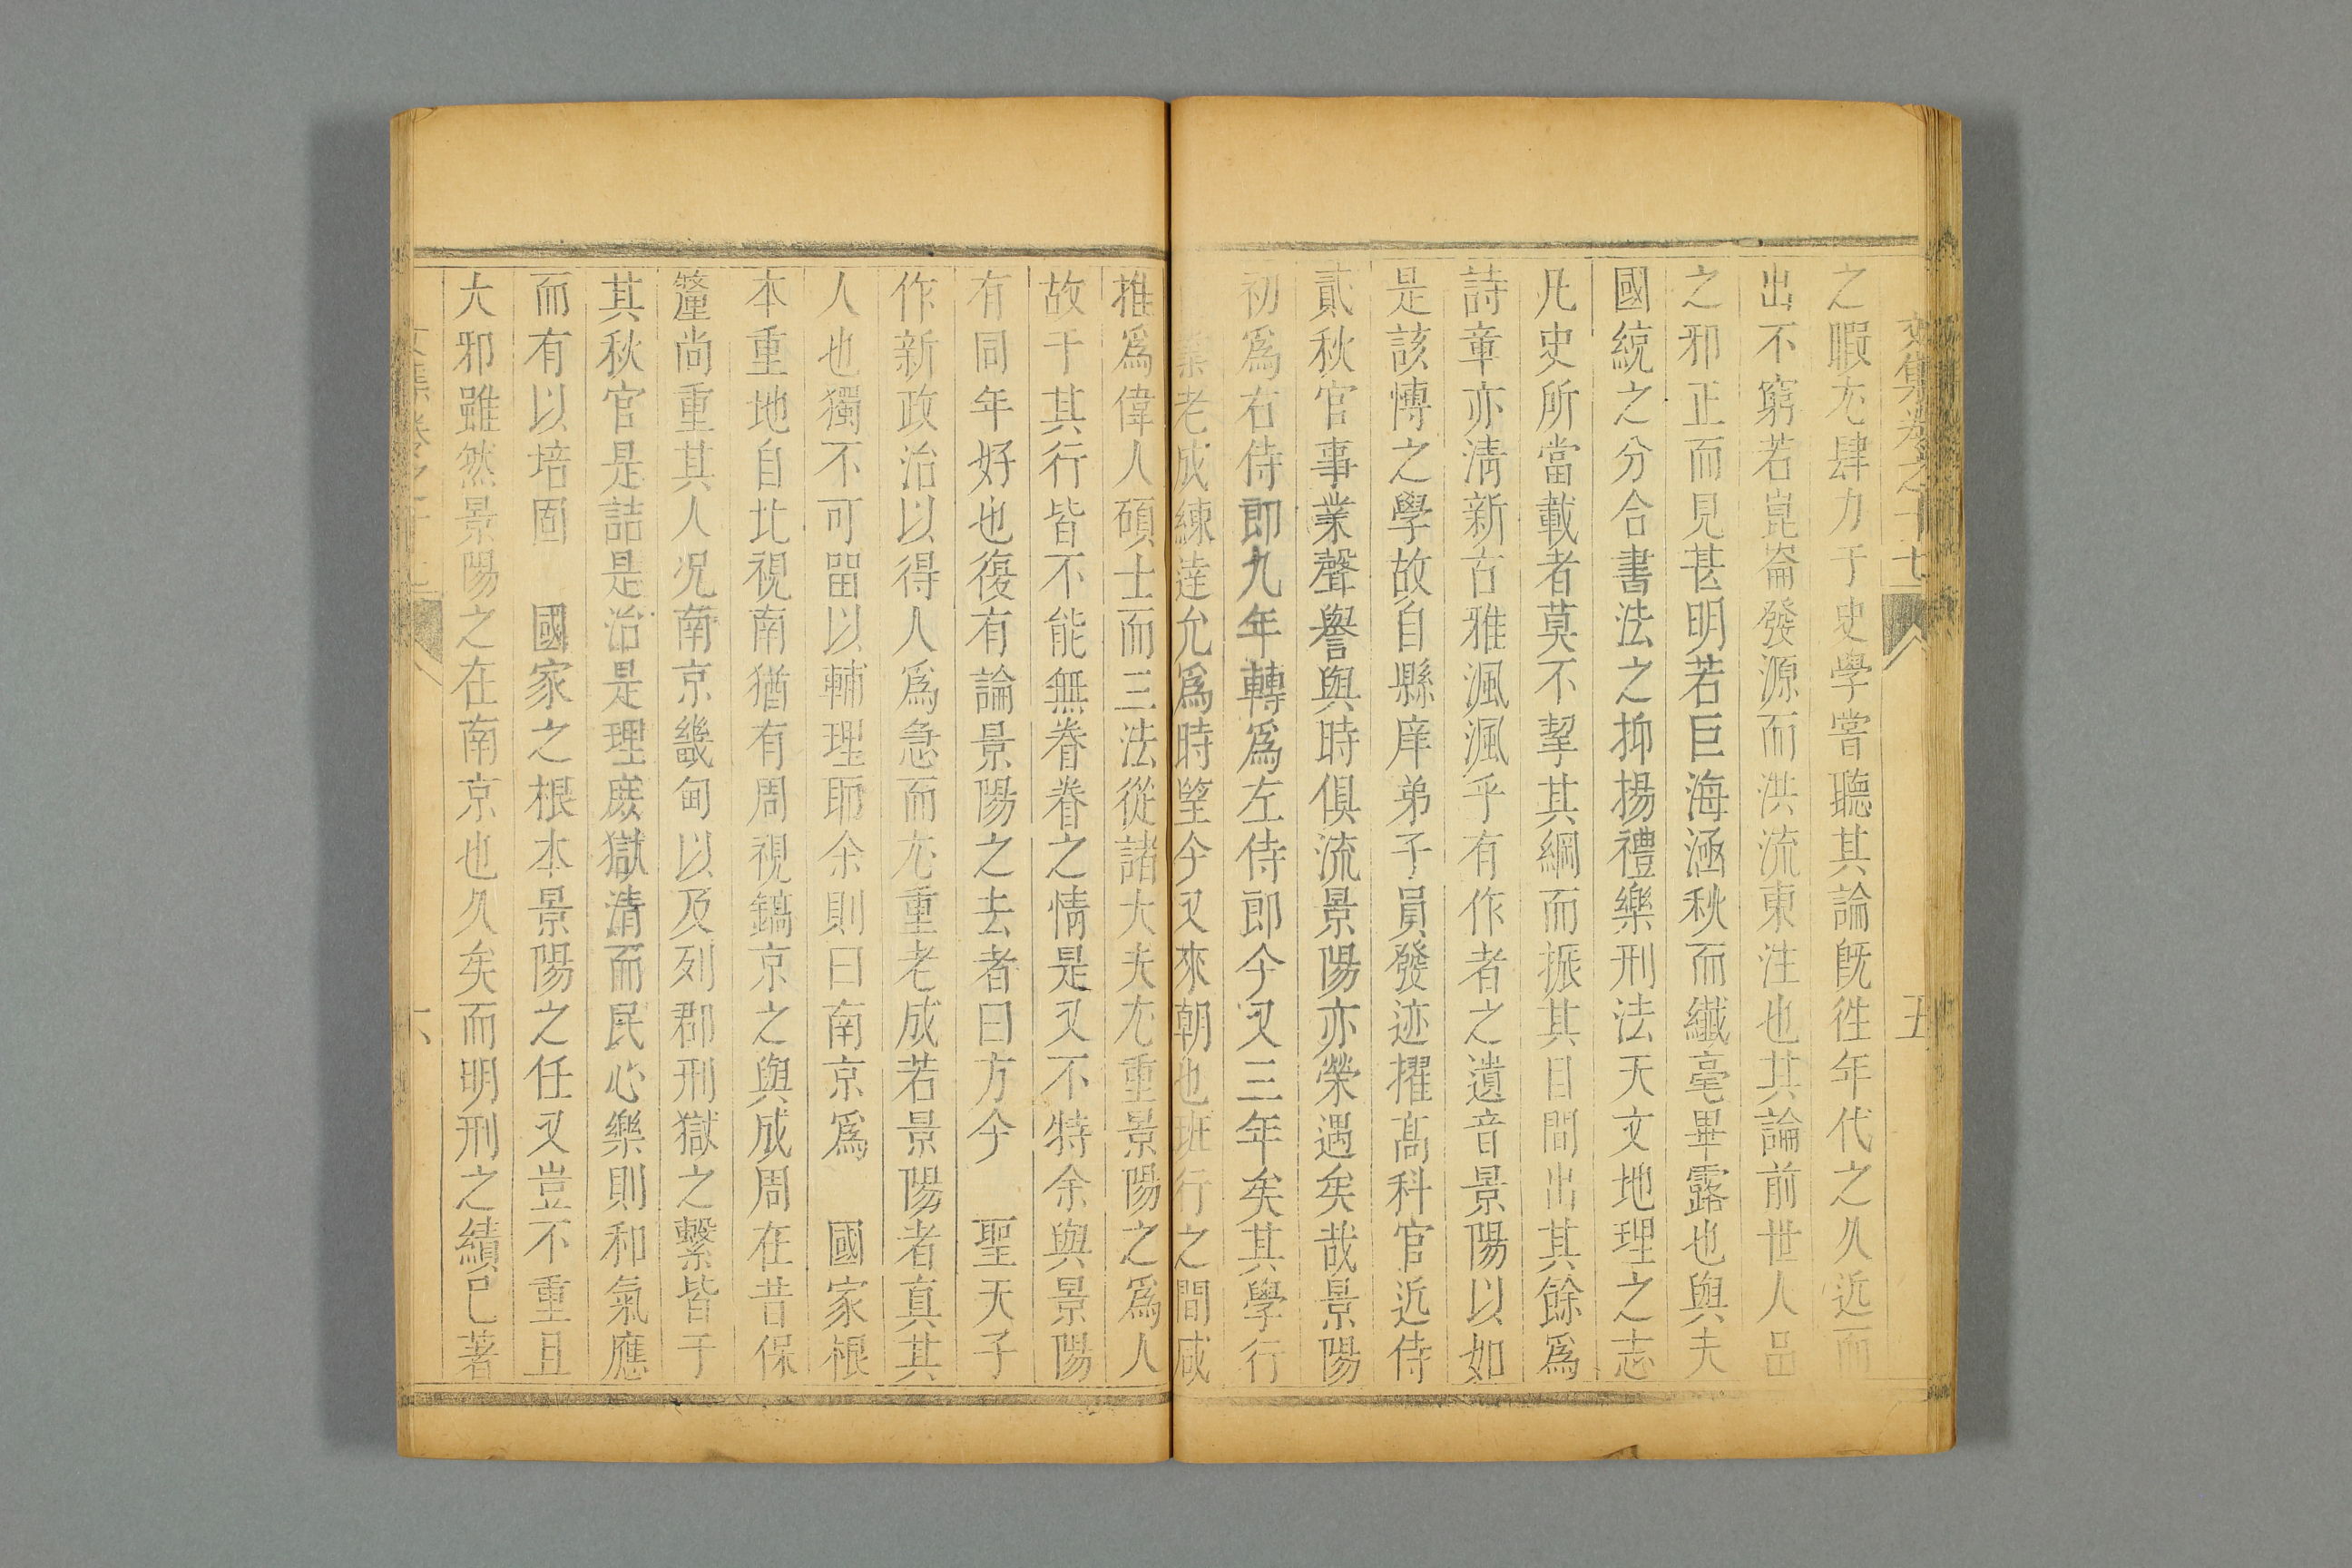 文集卷之十七 五
之暇尤肆力于史學嘗聽其論旣徃年代之久近而
出不窮若崑崙發源而洪流東注也其論前世人品
之邪正而見甚明若巨海涵秋而纎毫畢露也與夫
國統之分合書法之抑揚禮樂刑法天文地理之志
凡史所當載者莫不挈其綱而振其目間出其餘爲
詩章亦淸新古雅渢渢乎有作者之遺音景陽以如
是該博之學故自縣庠弟子員發迹擢髙科官近侍
貳秋官事業聲譽與時俱流景陽亦榮遇矣哉景陽
初爲右侍郎九年轉爲左侍郎今又三年矣其學行
業老成練達允爲時望今又來朝也班行之間咸
推爲偉人碩士而三法從諸大夫尤重景陽之爲人
故于其行皆不能無眷眷之情是又不特余與景陽
有同年好也復有論景陽之去者曰方今 聖天子
作新政治以得人爲急而尤重老成若景陽者真其
人也獨不可留以輔理耶余則曰南京爲 國家根
本重地自北視南猶有周視鎬京之與成周在昔保
釐尚重其人况南京畿甸以及列郡刑獄之繫皆于
其秋官是詰是治是理庶獄清而民心樂則和氣應
而有以培固 國家之根本景陽之任又豈不重且
大邪雖然景陽之在南京也久矣而明刑之績已著
文集卷之十七 六